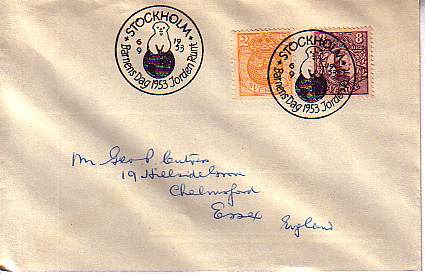 ★ STOCKHOLM ★
6 19
9 53
Barnens Dag 1953 Jorden Runt
2
8
★ STOCKHOLM ★
6
9
Barnens Dag 1953 Jorden Runt
Mr Geo P
19 Hillside Grove
Chelmsford
Essex
England